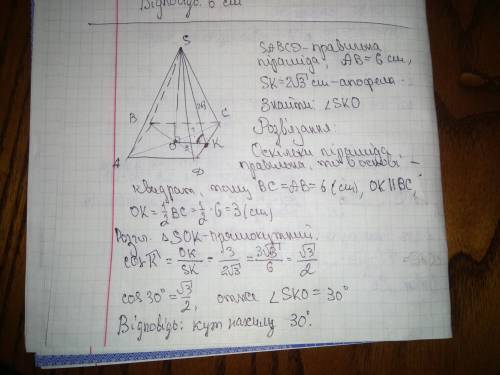 Відповідь: 6 см
S
SABCD - правильна
піраміда, AB = 6 см,
SK = 2√3 см - апофема
Знайти: ∠SKO
Розв'язання:
B
C
O
K
3
A
D
Оскільки піраміда
правильна, то в основі -
квадрат, тому BC = AB = 6 (см), OK || BC,
OK = 1/2 BC = 1/2 · 6 = 3 (см)
Розгл. △SOK - прямокутний.
cos K = OK/SK = 3/2√3 = 3√3/6 = √3/2
cos 30° = √3/2, отже ∠SKO = 30°
Відповідь: кут нахилу 30°.